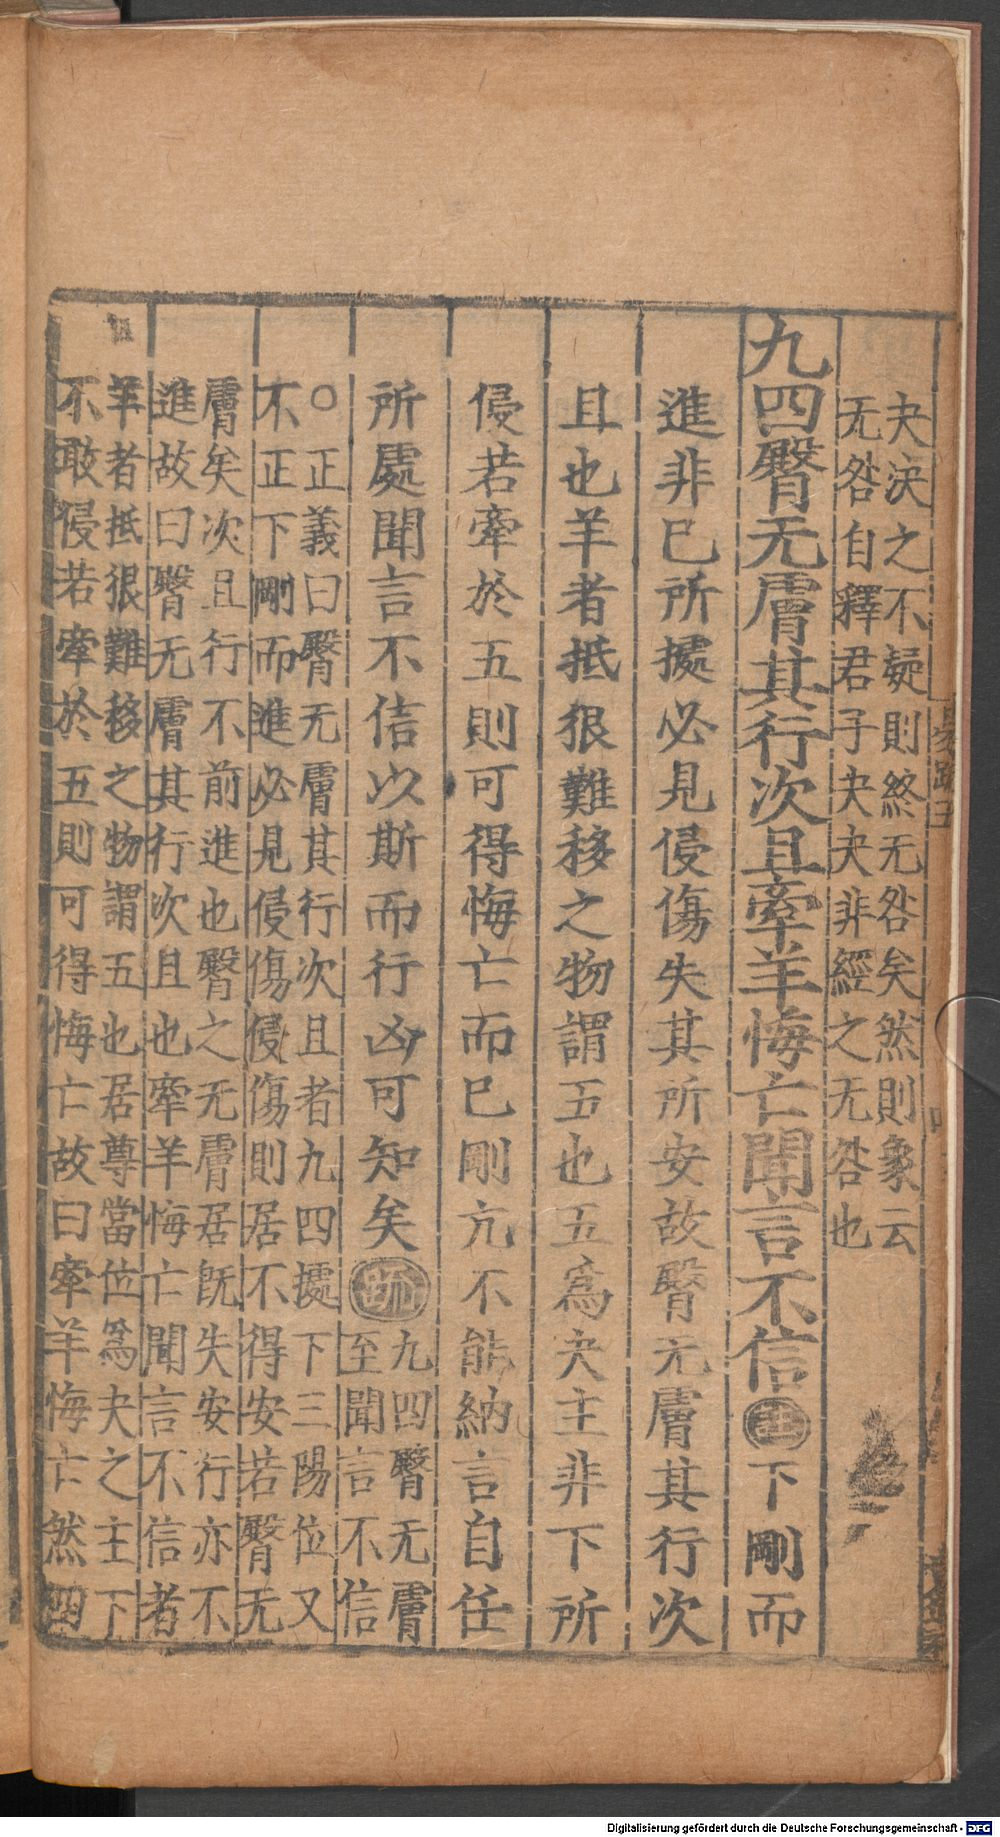 夬決之不疑則終无咎矣然則象云
无咎自釋君子夬夬非經之无咎也
九四臀无膚其行次且牽羊悔亡聞言不信註下剛而
進非已所據必見侵傷失其所安故臀无膚其行次
且也羊者抵很難移之物謂五也五爲夬主非下所
侵若牽於五則可得悔亡而已剛亢不能納言自任
所處聞言不信以斯而行凶可知矣疏九四臀无膚
至聞言不信
○正義曰臀无膚其行次且者九四據下三陽位又
不正下剛而進必見侵傷侵傷則居不得安若臀无
膚矣次且行不前進也臀之无膚居旣失安行亦不
進故曰臀无膚其行次且也牽羊悔亡聞言不信者
羊者抵很難移之物謂五也居尊當位爲夬之主下
不敢侵若牽於五則可得悔亡故曰牽羊悔亡然四
易疏五
Digitalisierung gefördert durch die Deutsche Forschungsgemeinschaft - DFG